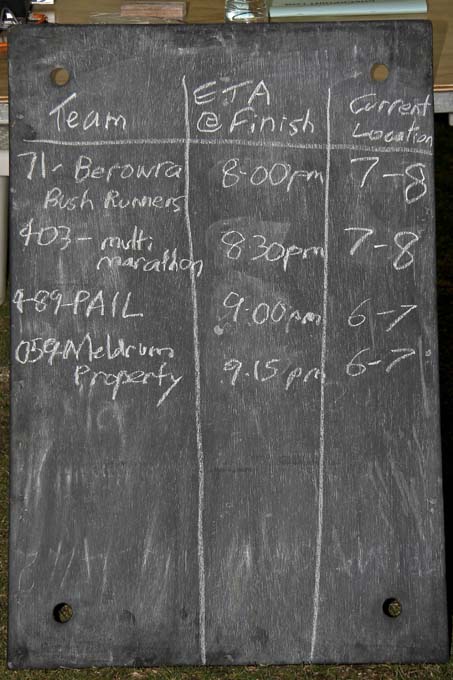 Team
ETA
@ Finish
Current
Location
71- Berowra
Bush Runners
8-00pm
7-8
403- multi
marathon
8:30pm
7-8
4-89-PAIL
9:00pm
6-7
059-Meldrum
Property
9.15 pm
6-7